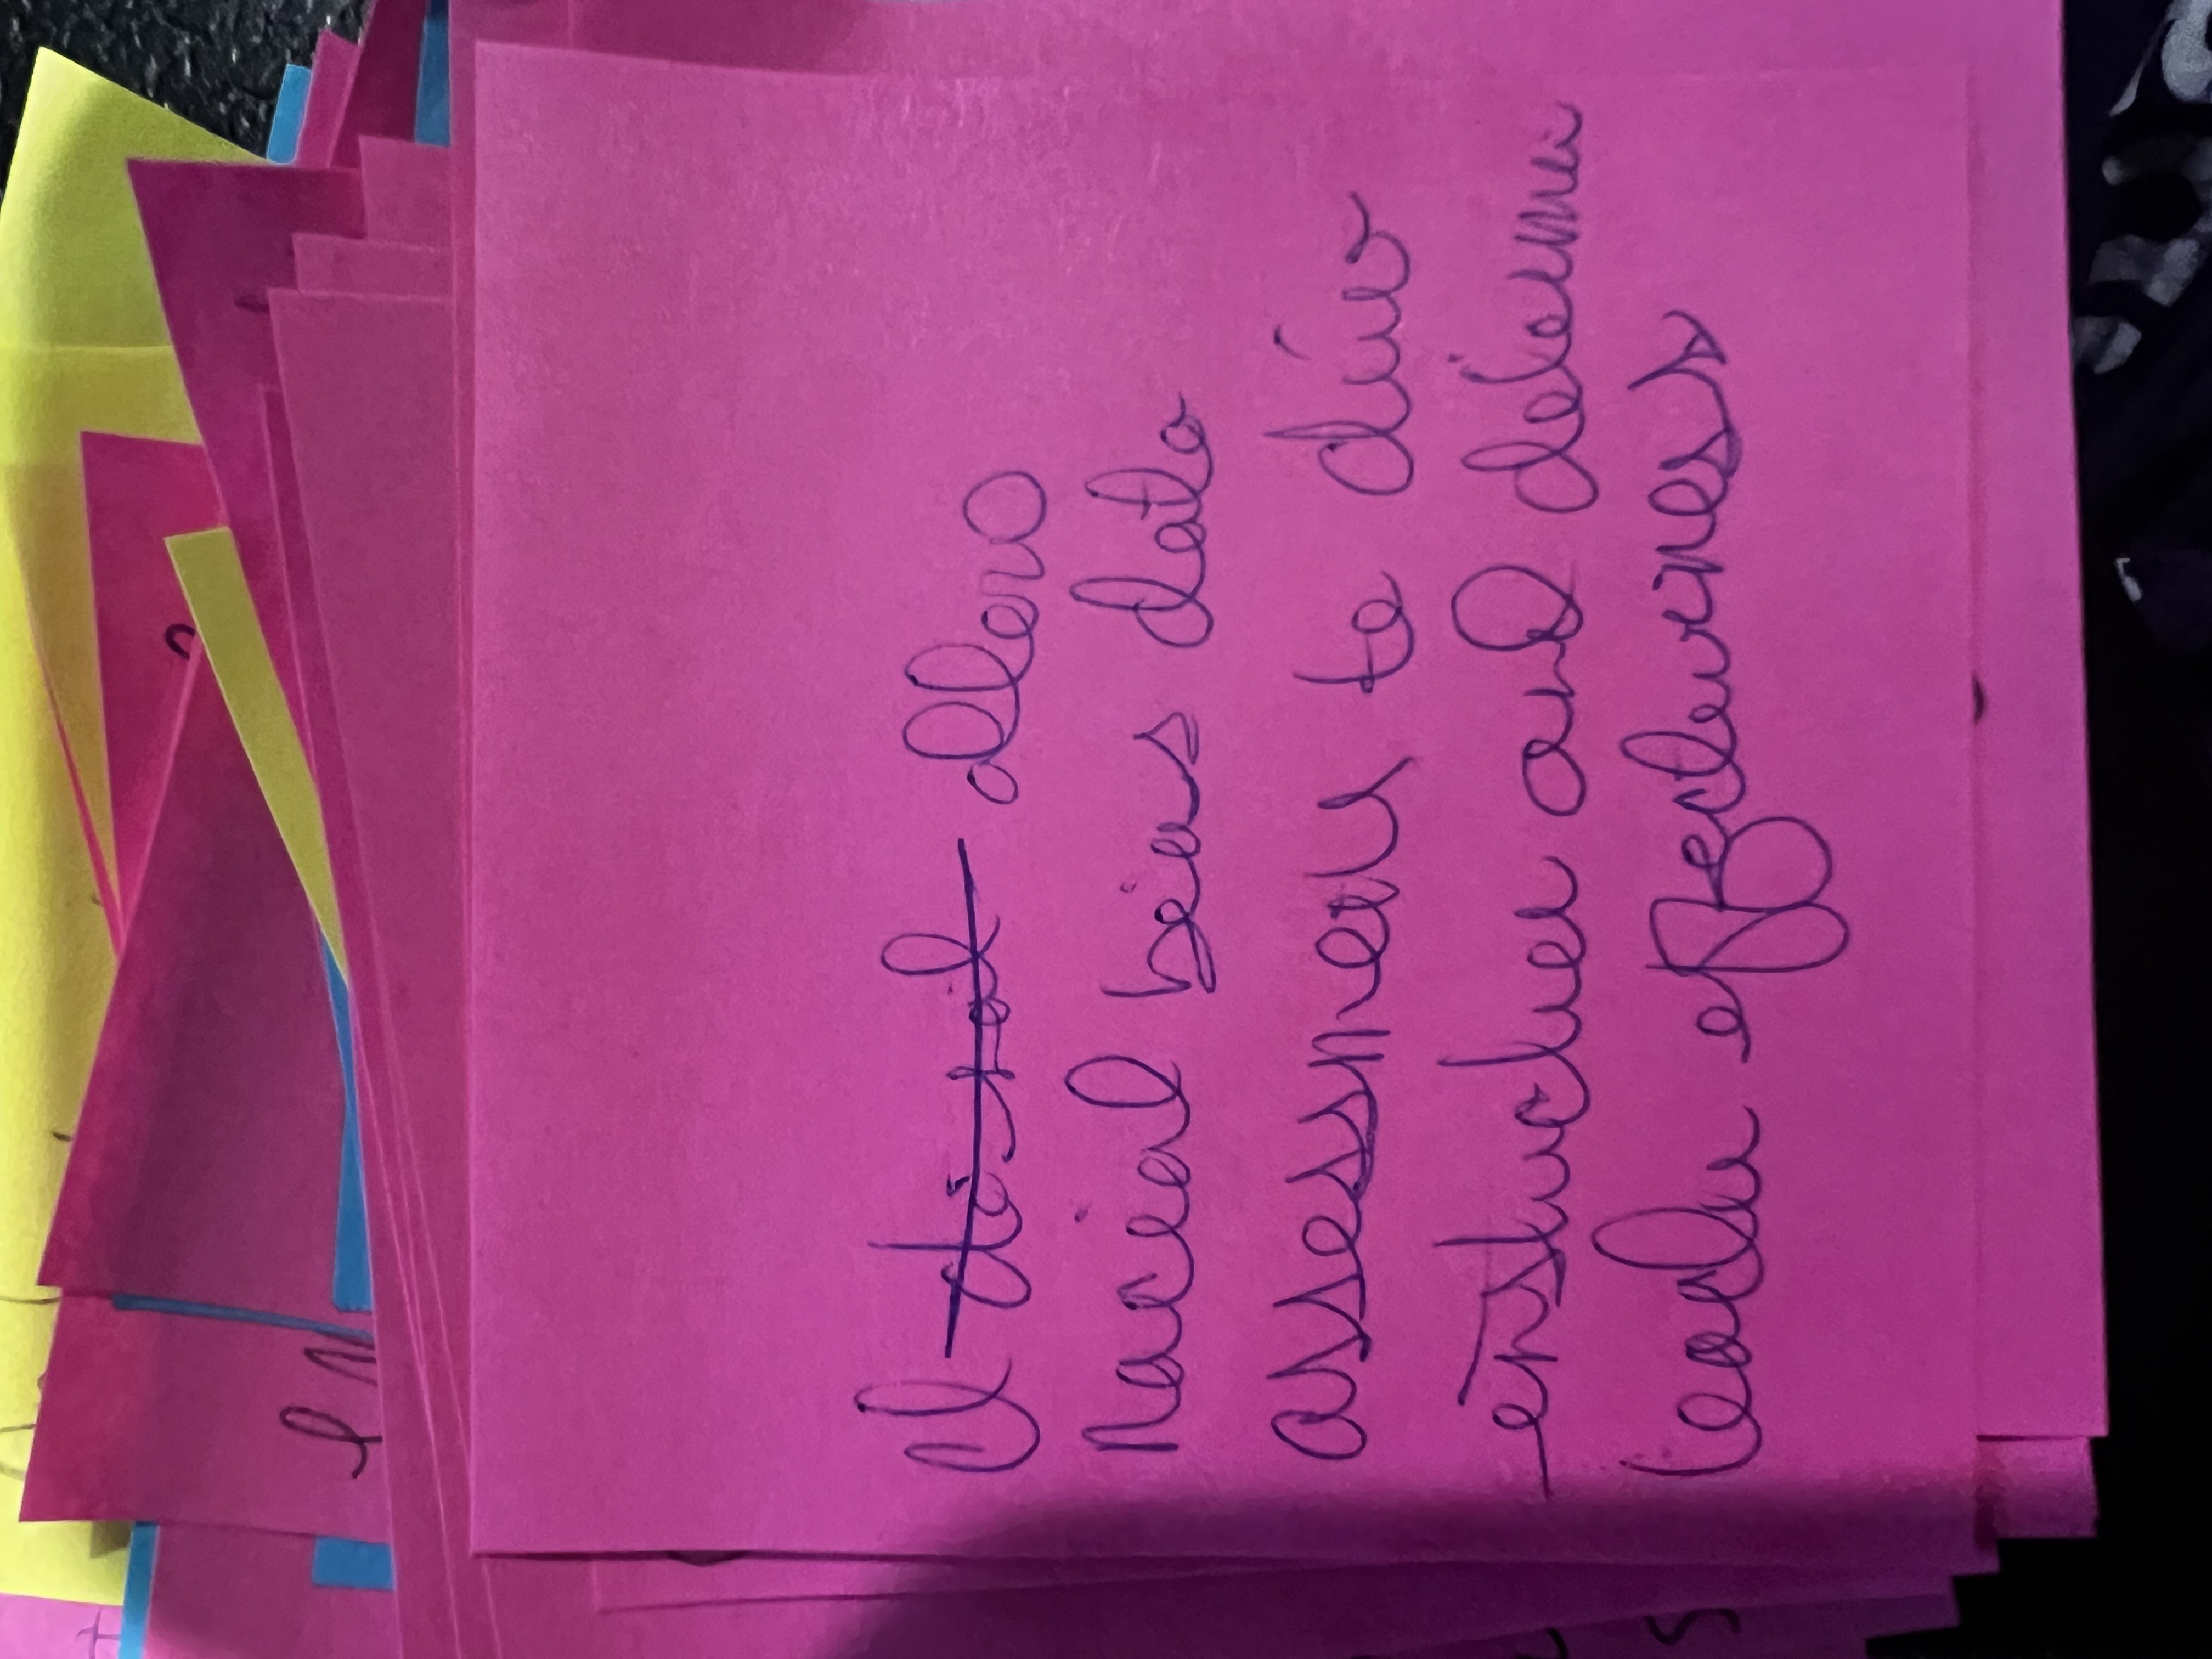 I disal allow
racial bias data
assessment to drive
instruction and determine
teacher effectiveness